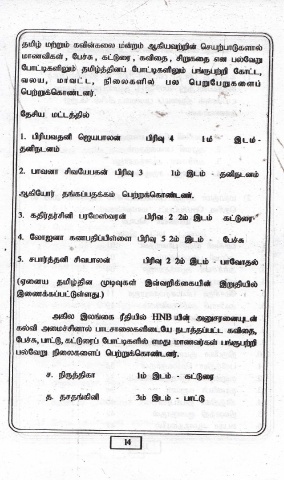 தமிழ் மற்றும் கவின்கலை மன்றம் ஆகியவற்றின் செயற்பாடுகளால்
மாணவிகள், பேச்சு, கட்டுரை, கவிதை, சிறுகதை என பல்வேறு
போட்டிகளிலும் தமிழ்த்தினப் போட்டிகளிலும் பங்குபற்றி கோட்ட,
வலய, மாவட்ட, நிலைகளில் பல பெறுபேறுகளைப்
பெற்றுக்கொண்டனர்.
தேசிய மட்டத்தில்
1. பிரியவதனி ஜெயபாலன் பிரிவு 4 1ம் இடம்-
தனிநடனம்
2. பாவனா சிவயேகன் பிரிவு 3 1ம் இடம் - தனிநடனம்
ஆகியோர் தங்கப்பதக்கம் பெற்றுக்கொண்டனர்.
3. கதிர்தர்சினி பரமேஸ்வரன் பிரிவு 2 2ம் இடம் கட்டுரை
4. லோஜனா கணபதிப்பிள்ளை பிரிவு 5 2ம் இடம் - பேச்சு
5. சபார்த்தனி சிவபாலன் பிரிவு 2 2ம் இடம் - பாவோதல்
(ஏனைய தமிழ்தின முடிவுகள் இவ்வறிக்கையின் இறுதியில்
இணைக்கப்பட்டுள்ளது.)
அகில இலங்கை ரீதியில் HNB யின் அனுசரணையுடன்
கல்வி அமைச்சினால் பாடசாலைகளிடையே நடாத்தப்பட்ட கவிதை,
பேச்சு, பாட்டு, கட்டுரைப் போட்டிகளில் எமது மாணவர்கள் பங்குபற்றி
பல்வேறு நிலைகளைப் பெற்றுக்கொண்டனர்.
ச. நிருத்திகா 1ம் இடம் - கட்டுரை
த. தசதங்கினி 3ம் இடம் - பாட்டு
14